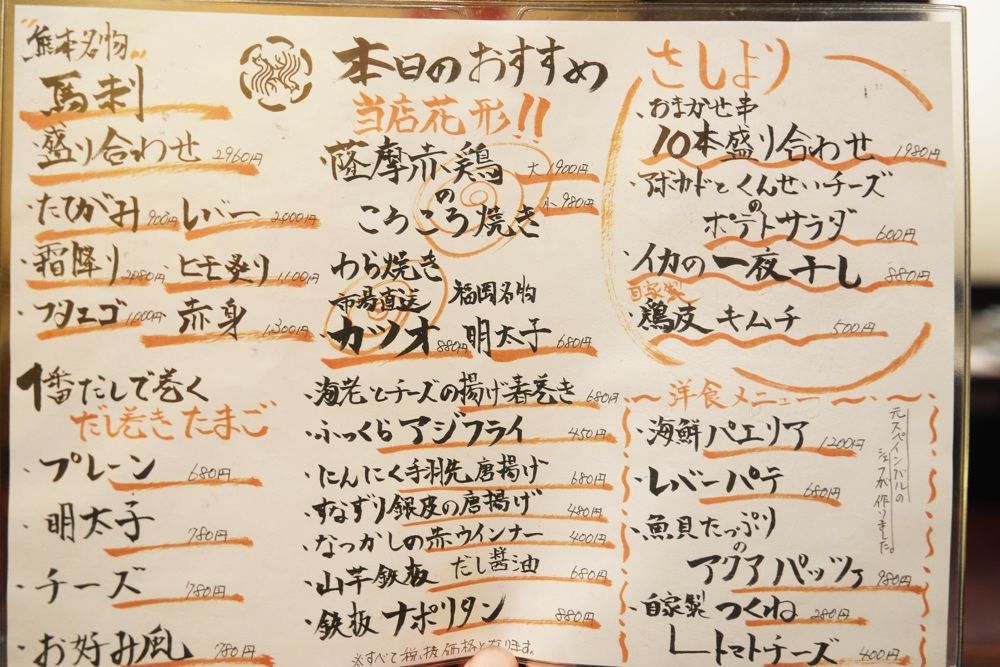 "熊本名物"
馬刺
・盛り合わせ 2960円
・たてがみ 900円 ・レバー 2000円
・霜降り 2980円 ・ヒモ炙り 1,100円
・フタエゴ 1000円 赤身 1,300円
1番だしで巻く
だし巻きたまご
・プレーン 680円
・明太子 780円
・チーズ 780円
・お好み風 780円
本日のおすすめ
当店花形!!
・薩摩赤鶏 大 1900円
の 小 980円
ころころ焼き
わら焼き
市場直送 福岡名物
カツオ 880円 明太子 680円
・海老とチーズの揚げ春巻き 680円
・ふっくらアジフライ 450円
・にんにく手羽先唐揚げ 680円
・すなずり銀皮の唐揚げ 480円
・なつかしの赤ウインナー 400円
・山芋鉄板 だし醤油 680円
・鉄板ナポリタン 880円
※すべて税抜価格となります。
さしより
・おまかせ串
10本盛り合わせ 1980円
・アボカドとくんせいチーズ
の
ポテトサラダ 600円
・イカの一夜干し 880円
自家製
・鶏皮キムチ 500円
~洋食メニュー~
元スペインバルの
シェフが作りました。
・海鮮パエリア 1200円
・レバーパテ 680円
・魚貝たっぷり
の
アクアパッツァ 980円
・自家製つくね 280円
トマトチーズ 400円